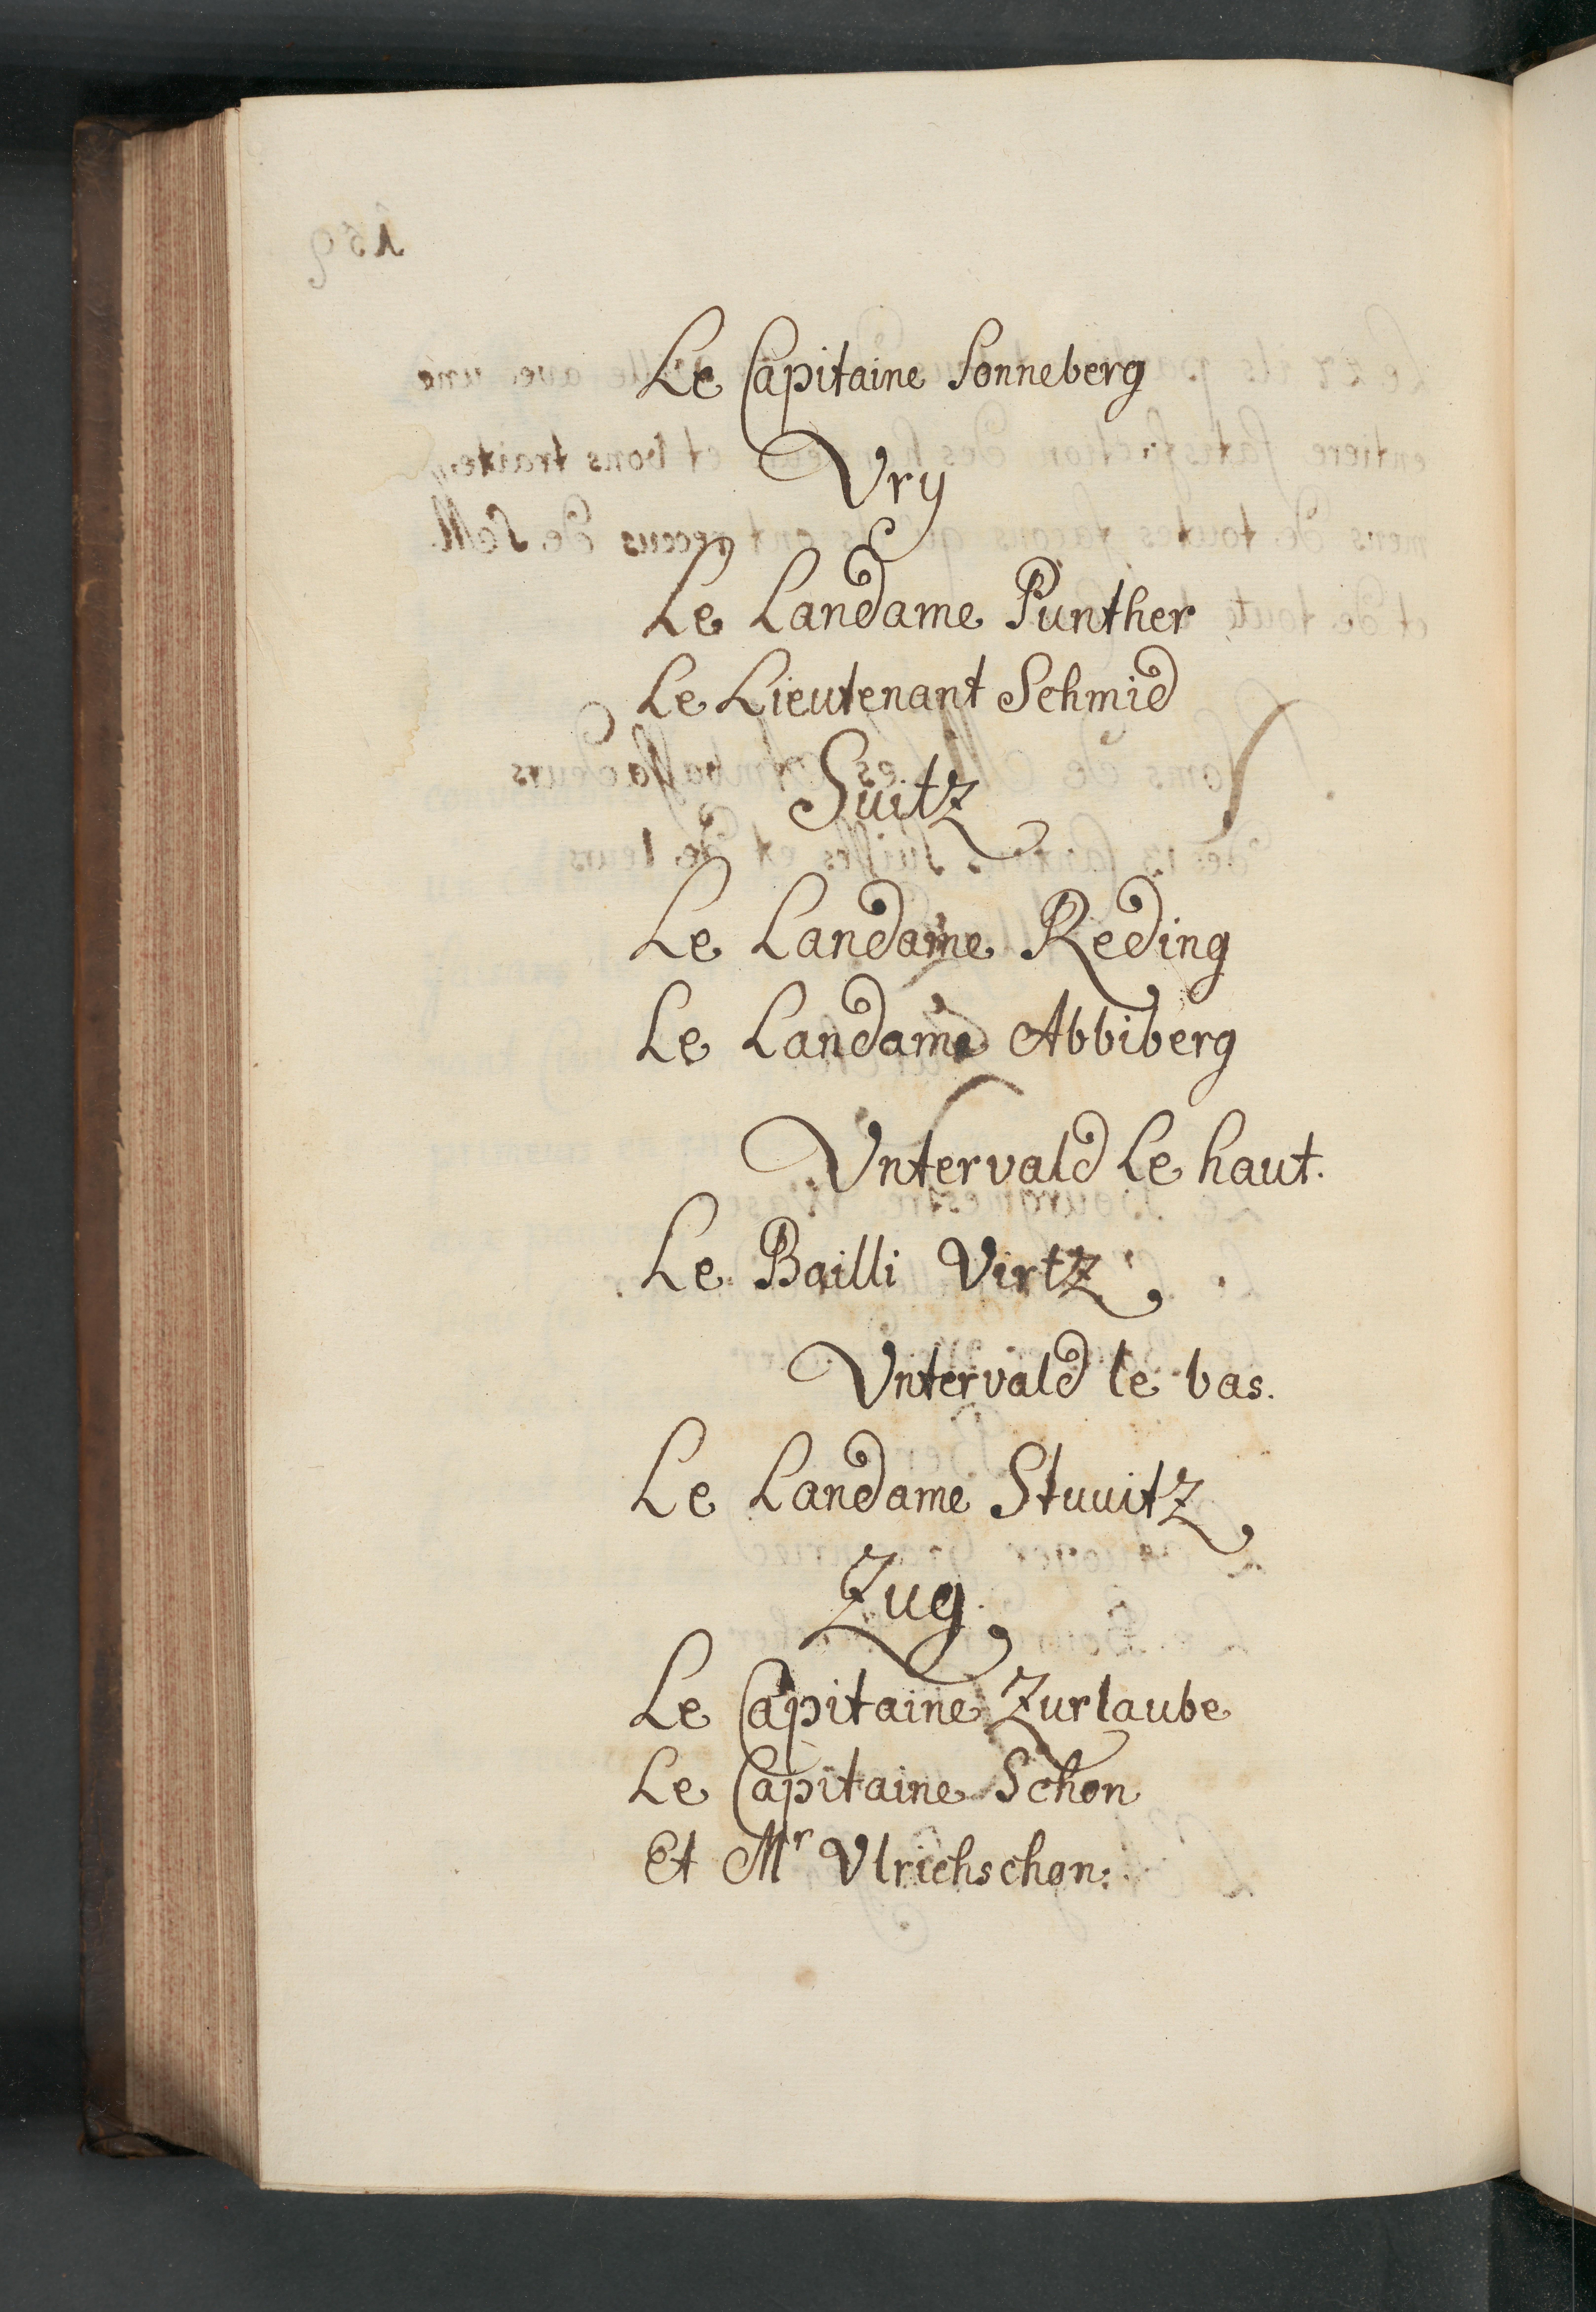 Le Capitaine Sonneberg
Vry
Le Landame Punther
Le Lieutenant Schmid
Suitz
Le Landame Reding
Le Landame Abbiberg
Vntervald le haut.
Le Bailli Virtz
Vntervald le bas.
Le Landame Stuuitz
Zug
Le Capitaine Zurlaube
Le Capitaine Schon
Et Mr Vlrichschon.